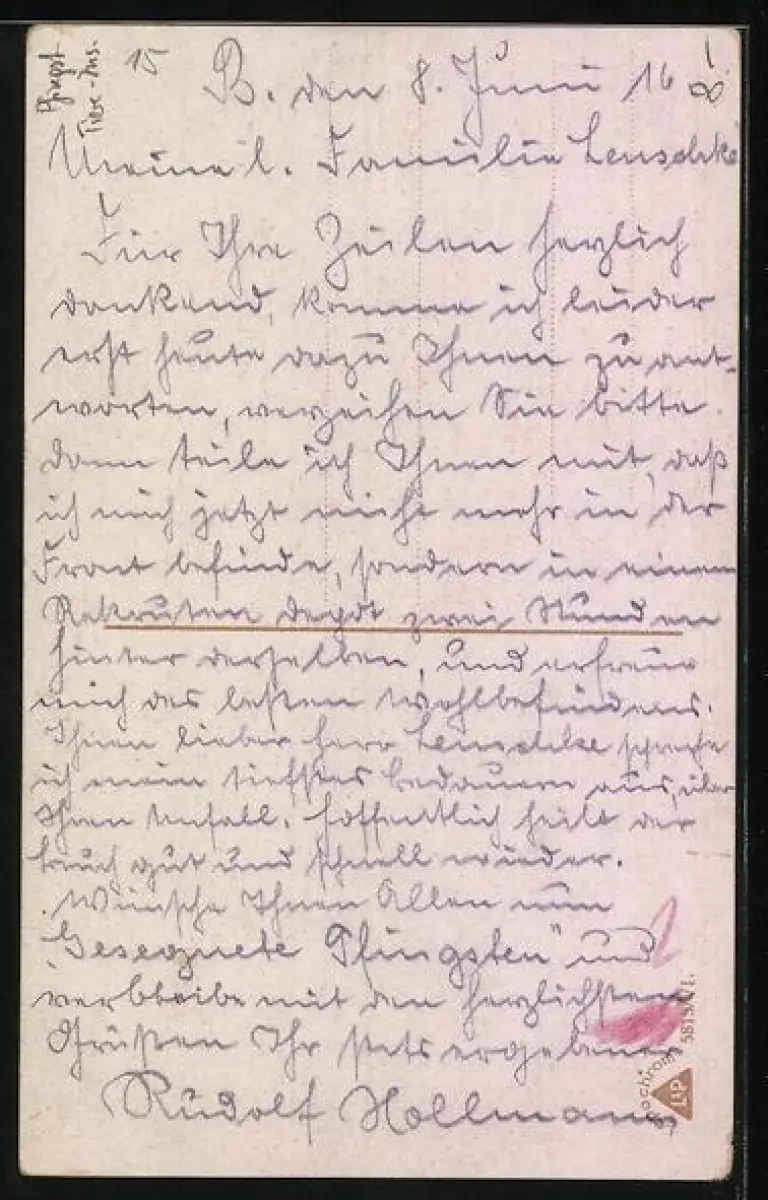 Pfingst
15
B. den 8. Juni 16
Meine l. Familie Lenschke
!
Für Ihre Zeilen herzlich
dankend, komme ich leider
erst heute dazu Ihnen zu ant-
worten, verzeihen Sie bitte.
Dann teile ich Ihnen mit, daß
ich mich jetzt nicht mehr in der
Front befinde, sondern in einem
Rekruten Depot zwei Stunden
hinter derselben, und erfreue
mich des besten Wohlbefindens.
Ihnen lieber Herr Lenschke spreche
ich mein tiefstes Bedauern aus, über
Ihren Unfall. Hoffentlich heilt der
Bruch gut und schnell wieder.
Wünsche Ihnen Allen nun
"Gesegnete Pfingsten" und
verbleibe mit den herzlichsten
Grüßen Ihr stets ergebener
Rudolf Hollmann